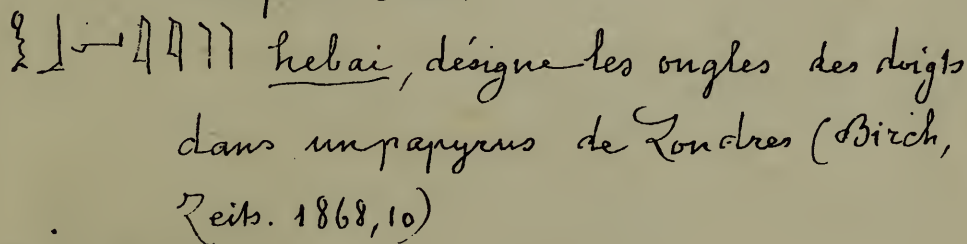 𓎛𓃀𓂝𓇋𓇋 hebai, désigne les ongles des doigts
dans un papyrus de Londres (Birch,
Zeits. 1868, 10)